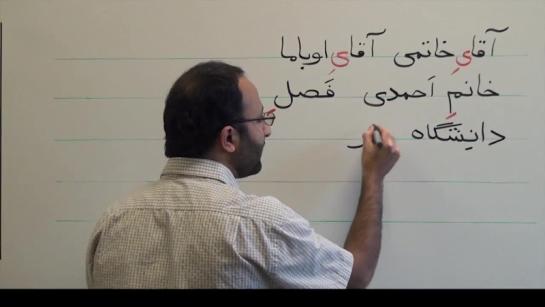 آقایِ خاتمی آقایِ اوباما
خانمِ اَحمدی فَصلِ
دانِشگاه